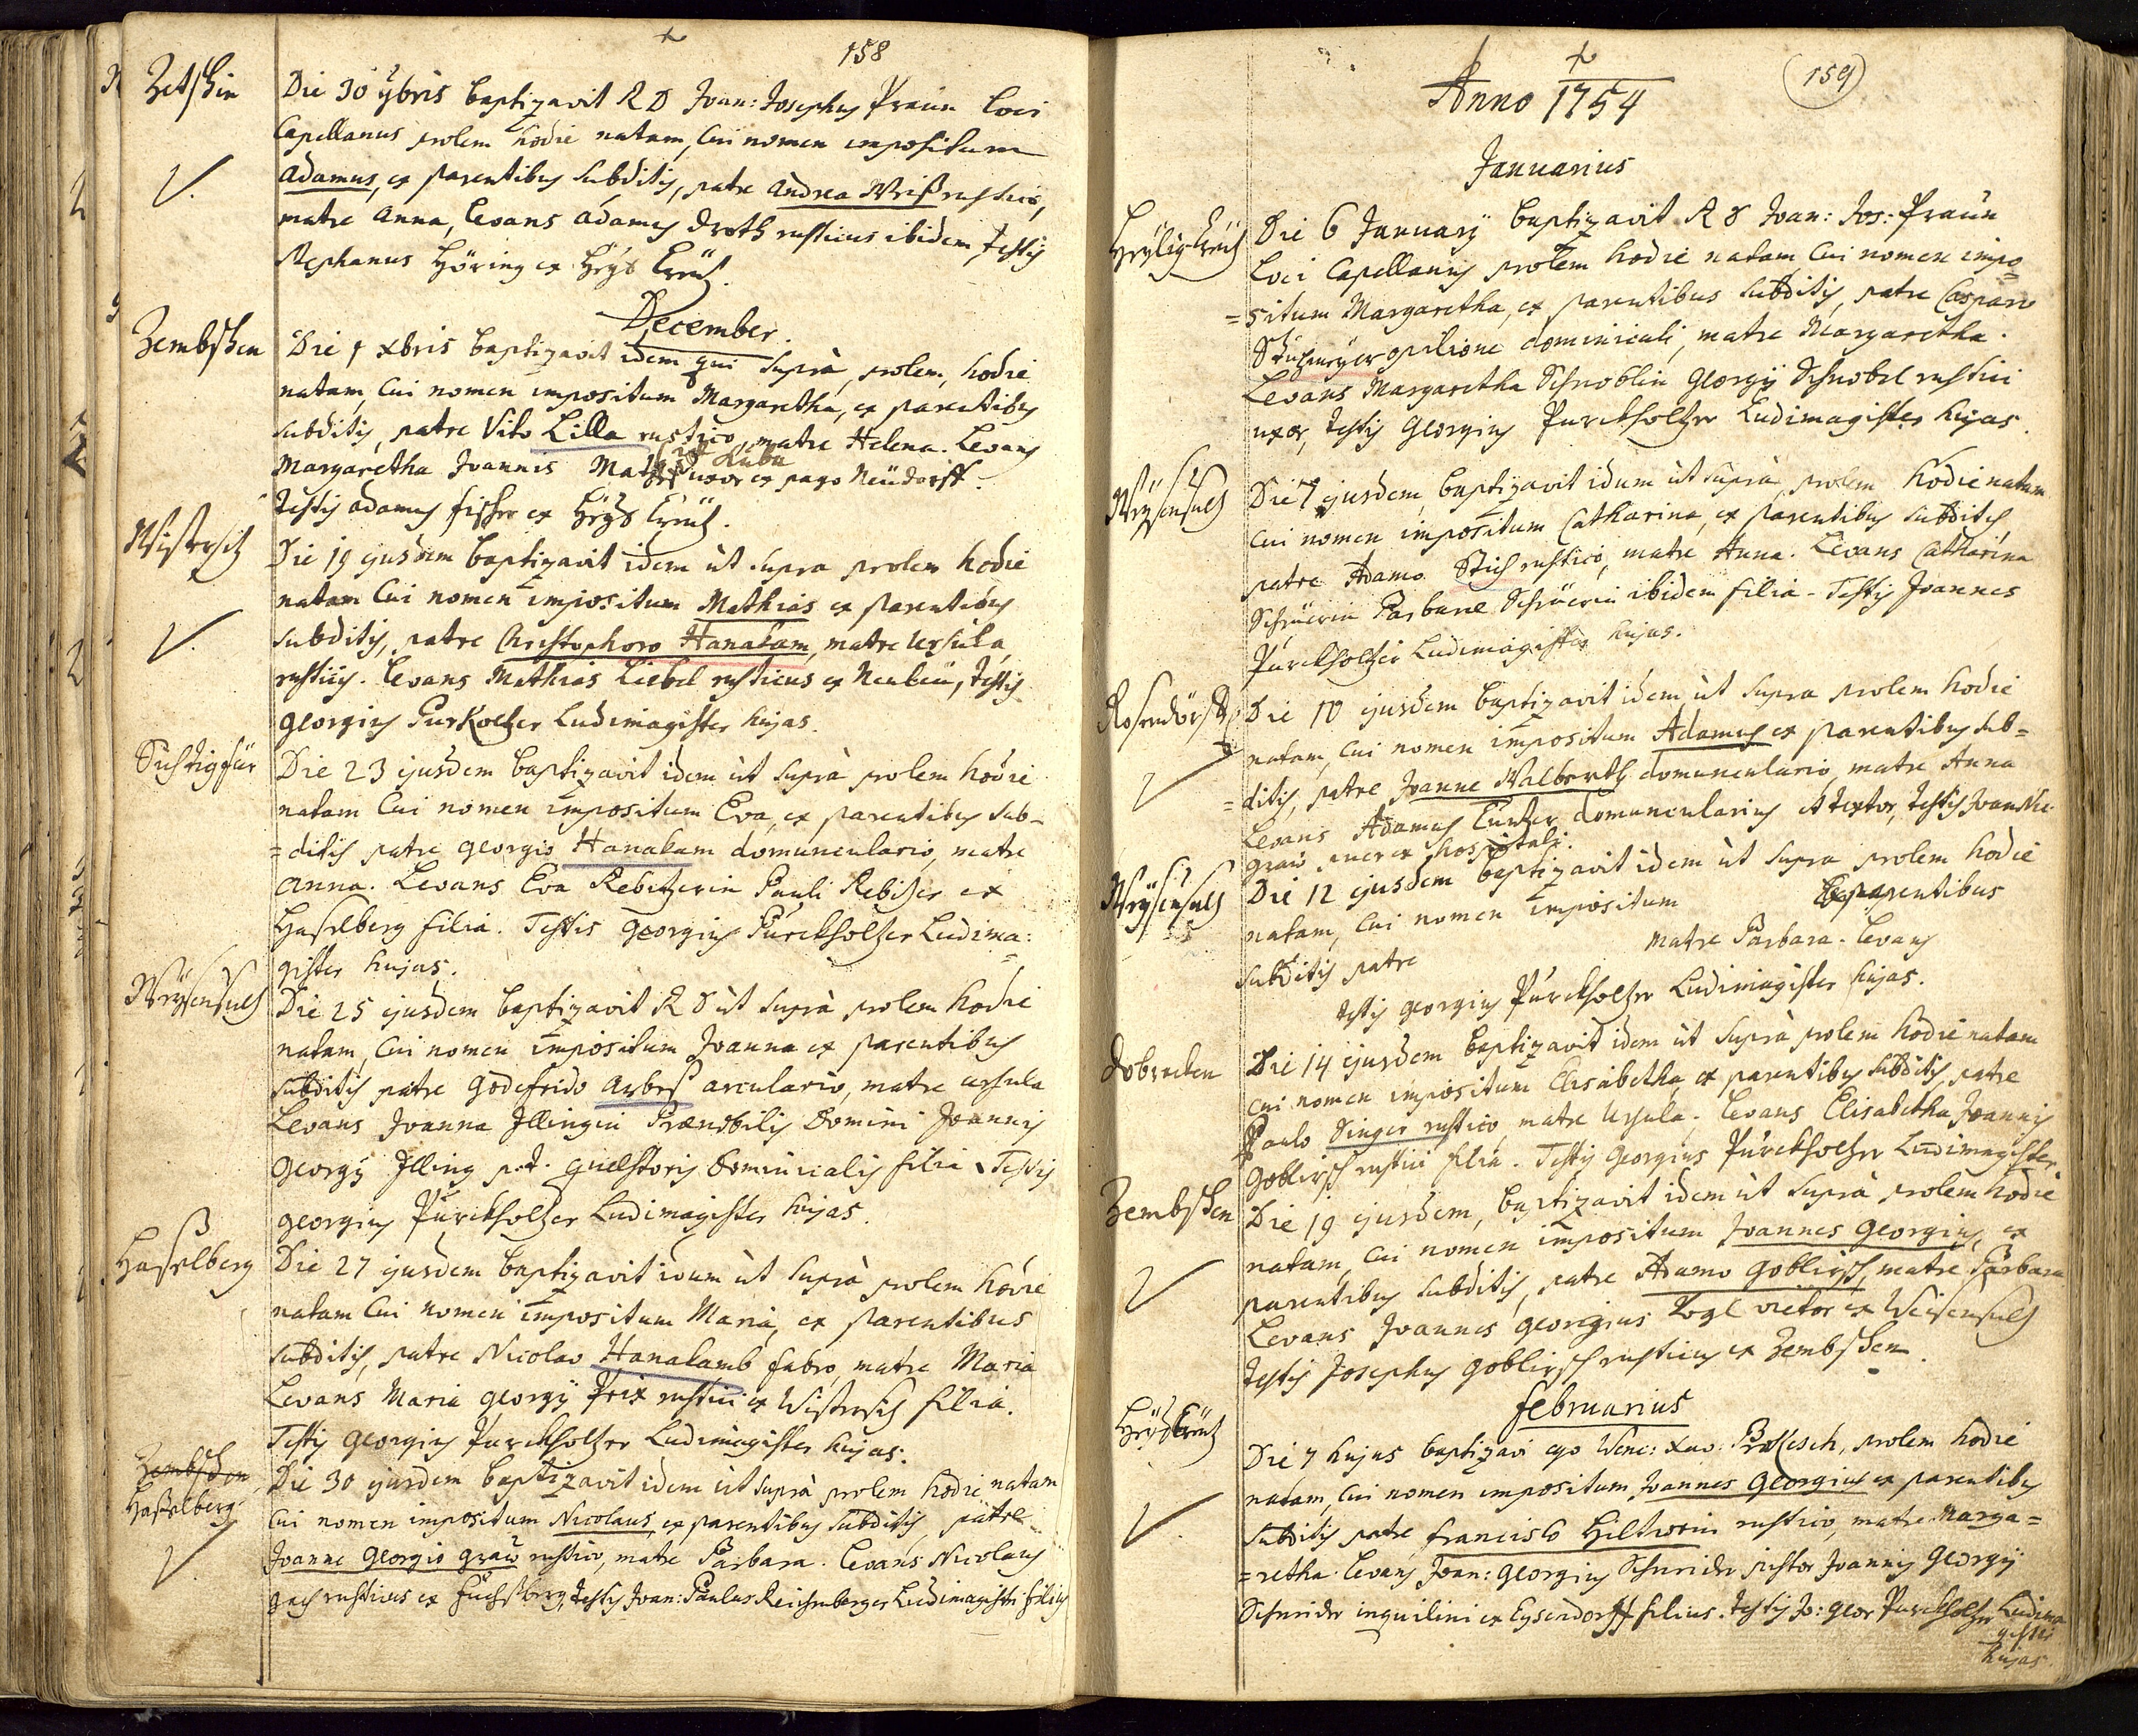 158
Zetschin
Die 30 9bris baptizavit R D Joan: Josephus Praun loci
Capellanus prolem hodie natam, cui nomen impositum
Adamus, ex parentibus subditis, patre Andrea Weiß rustico,
matre Anna, levans Adamus Droth rusticus ibidem, testis
Stephanus Höring ex Heÿl Creütz.
December.
Zembschen
Die 1 xbris baptizavit idem qui suprà, prolem, hodie
natam, cui nomen impositum Margaretha, ex parentibus
subditis, patre Vito Lilla rustico, matre Helena. Levans
Margaretha Joannis uxor ex pago Neüdorff.
testis Adamus fischer ex Heÿl Creütz.
Wistersitz
Die 19 ejusdem baptizavit idem ut supra prolem hodie
natam cui nomen impositum Mathias ex parentibus
subditis, patre Christophoro Hanakam, matre Ursula,
rusticis. Levans Mathias Liebel rusticus ex Neubäu, testis
Georgius Purkoltzer Ludimagister hujas.
Sichtigfür
Die 23 ejusdem baptizavit idem ut suprà prolem hodie
natam cui nomen impositum Eva, ex parentibus sub-
=ditis patre Georgio Hanakam domunculario, matre
Anna. Levans Eva Rebitzerin Pauli Rebitzer ex
Haselberg filia. Testis Georgius Pürckholtzer Ludima:
gister hujas.
Weÿsensultz
Die 25 ejusdem baptizavit R D ut suprà prolem hodie
natam, cui nomen impositum Joanna ex parentibus
subditis patre Godefrido arculario, matre Ursula
Levans Joanna Illingin Prænobilis Domini Joannis
Georgÿ Illing p.t. quæstoris Dominicalis filia. Testis
Georgius Pürckholtzer Ludimagister hujas.
Haselberg
Die 27 ejusdem baptizavit idem ut suprà prolem hodie
natam cui nomen impositum Maria, ex parentibus
subditis, patre Nicolao Hanakamb fabro, matre Maria
Levans Maria Georgÿ Prix rustici ex Wistersitz filia.
Testis Georgius Purckholtzer Ludimagister hujas.
Zembschen
Haßelberg
Die 30 ejusdem baptizavit idem ut suprà prolem hodie natam
cui nomen impositum Nicolaus ex parentibus subditis, patre
Joanne Georgio Graw rustico, matre Barbara. Levans Nicolaus
rusticus ex Füchsberg, testis Joan: Paulus Reichenberger Ludimagistri filius
159
Anno 1754
Januarius
Heÿlig Creütz
Die 6 Januarÿ baptizavit R D Joan: Jos: Praun
loci Capellanus prolem hodie natam, cui nomen impo=
=situm Margaretha, ex parentibus subditis, patre Casparo
opilione dominicali, matre Margaretha.
Levans Margaretha Schnoblin Georgÿ Schnobel rustici
uxor, testis Georgius Purckholtzer Ludimagister hujas.
Weÿsensultz
Die 7 ejusdem, baptizavit idem ut suprà, prolem hodie natam
cui nomen impositum Catharina, ex parentibus subditis,
patre Adamo Stich rustico, matre Anna. Levans Catharina
Schrüerin Barbaræ Schrüerin ibidem filia. Testis Joannes
Pürckholtzer Ludimagister hujas.
Rosendörffl
Die 10 ejusdem baptizavit idem ut supra prolem hodie
natam, cui nomen impositum Adamus ex parentibus sub=
=ditis, patre Joanne Walberth domunculario, matre Anna
Levans Adamus Cuntzer domuncularius et textor, testis Joan Nic.
Graw puer ex hospitali.
Weÿsensultz
Die 12 ejusdem baptizavit idem ut supra prolem hodie
natam, cui nomen impositum ex parentibus
subditis patre matre Barbara. Levans
testis Georgius Pürckholtzer Ludimagister hujas.
Dobraken
Die 14 ejusdem baptizavit idem ut suprà prolem hodie natam
cui nomen impositum Elisabetha, ex parentibus subditis, patre
Paulo Singer rustico, matre Ursula. Levans Elisabetha Joannis
Goblirsch rustici filia. Testis Georgius Pürckholtzer Ludimagister.
Zembschen
Die 19 ejusdem, baptizavit idem ut suprà prolem hodie
natam, cui nomen impositum Joannes Georgius, ex
parentibus subditis, patre Adamo Goblirsch, matre Barbara
Levans Joannes Georgius Vogl vietor ex Weisensultz
testis Josephus Goblirsch rusticus ex Zembschen.
februarius
Heÿl Creütz
Die 7 hujus baptizavi ego Wenc: Xav: prolem hodie
natam, cui nomen impositum Joannes Georgius ex parentibus
subditis patre francisco Hiltwein rustico, matre Marga=
=retha. Levans Joan: Georgius Schneider pistor Joannis Georgÿ
Schneider inquilini ex Eysendorff filius. Testis Jo: Geor Purckholtzer Ludima
gister
hujas.